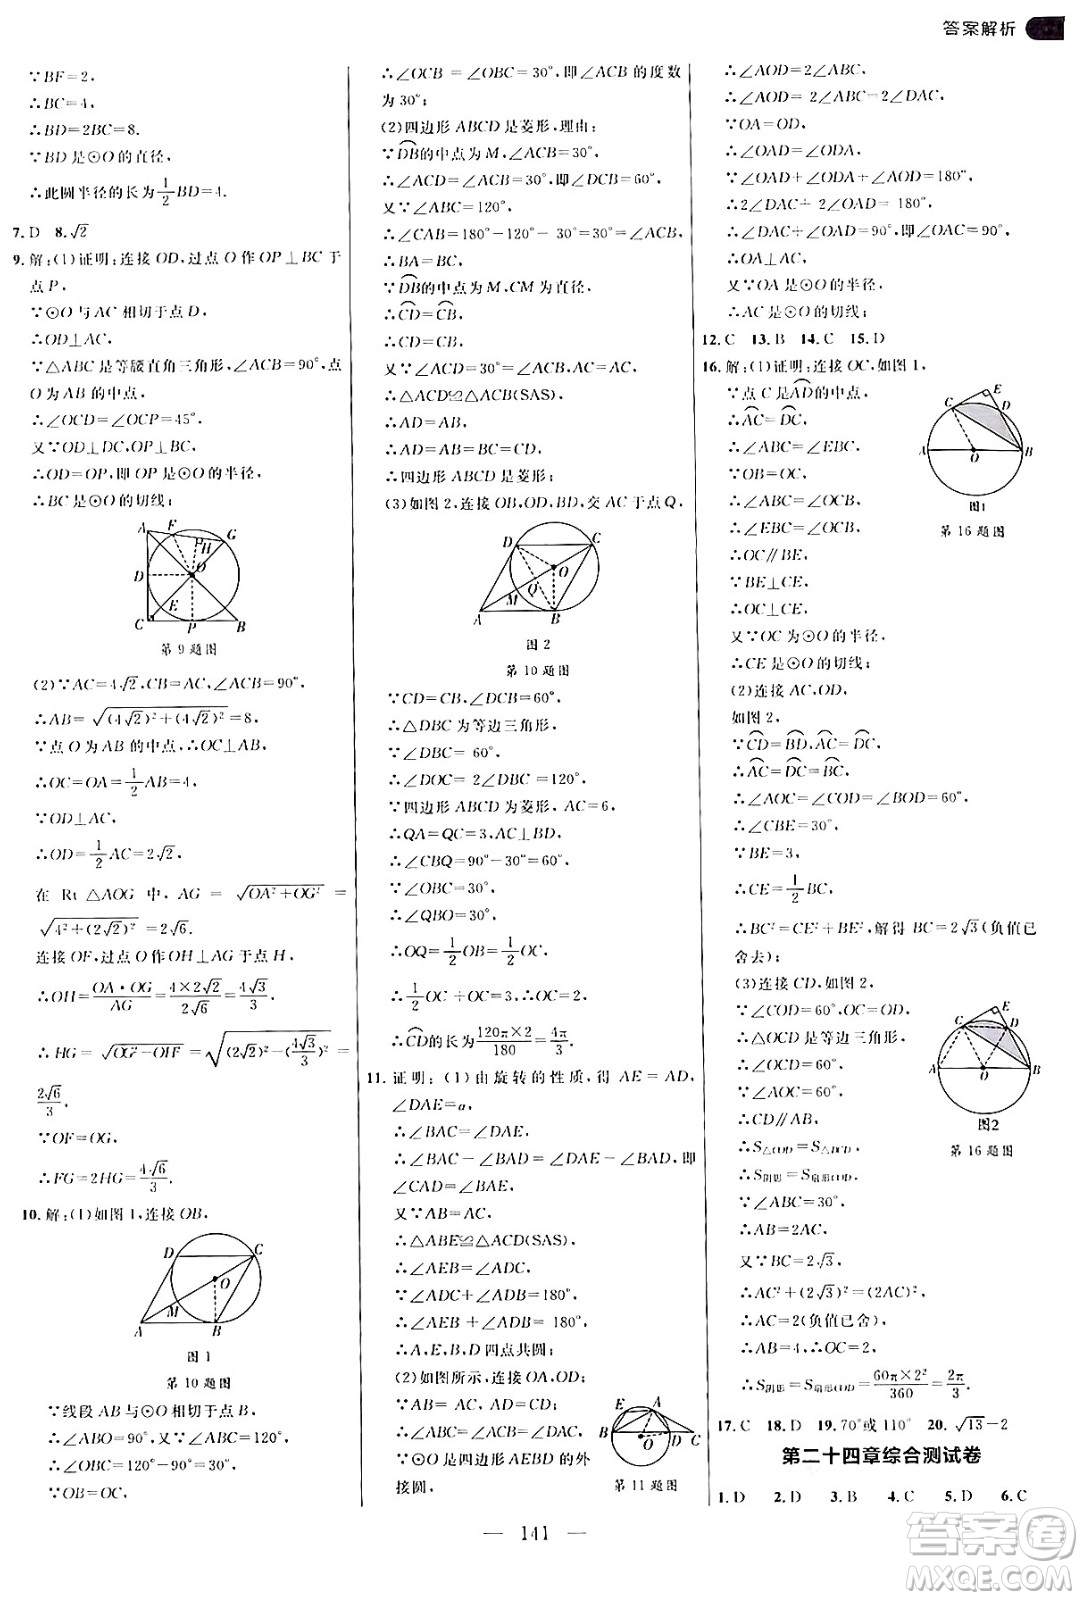 答案解析
∵BF=2，
∴BC=4，
∴BD=2BC=8.
∵BD是⊙O的直径，
∴此圆半径的长为1/2BD=4.
7.D 8.√2
9.解：(1)证明：连接OD，过点O作OP⊥BC于
点P，
∵⊙O与AC相切于点D，
∴OD⊥AC，
∵△ABC是等腰直角三角形，∠ACB=90°，点
O为AB的中点，
∴∠OCD=∠OCP=45°，
又∵OD⊥DC，OP⊥BC，
∴OD=OP，即OP是⊙O的半径，
∴BC是⊙O的切线；
A F H G D O E C P B
第9题图
(2)∵AC=4√2，CB=AC，∠ACB=90°，
∴AB=√((4√2)²+(4√2)²)=8，
∵点O为AB的中点，∴OC⊥AB，
∴OC=OA=1/2AB=4，
∵OD⊥AC，
∴OD=1/2AC=2√2，
在 Rt △AOG 中，AG = √(OA²+OG²) =
√(4²+(2√2)²)=2√6，
连接OF，过点O作OH⊥AG于点H，
∴OH=OA·OG/AG=4×2√2/2√6=4√3/3，
∴HG=√(OG²-OH²)=√((2√2)²-(4√3/3)²)=
2√6/3.
∵OF=OG，
∴FG=2HG=4√6/3.
10.解：(1)如图1，连接OB，
D C O M A B
图1
第10题图
∵线段AB与⊙O相切于点B，
∴∠ABO=90°，∵∠ABC=120°，
∴∠OBC=120°-90°=30°，
∵OB=OC，
∴∠OCB=∠OBC=30°，即∠ACB的度数
为30°；
(2)四边形ABCD是菱形，理由：
∵DB的中点为M，∠ACB=30°，
∴∠ACD=∠ACB=30°，即∠DCB=60°，
又∵∠ABC=120°，
∴∠CAB=180°-120°-30°=30°，
∴BA=BC，
∵DB的中点为M，CM为直径，
∴CD=CB，
∴CD=CB，
∴△ACD≌△ACB(SAS)，
∴AD=AB，
∴AD=AB=BC=CD，
∴四边形ABCD是菱形；
(3)如图2，连接OB，OD，BD，交AC于点Q，
D C O Q M A B
图2
第10题图
∵CD=CB，∠DCB=60°，
∴△DBC为等边三角形，
∴∠DBC=60°，
∴∠DOC=2∠DBC=120°，
∵四边形ABCD为菱形，AC=6，
∴QA=QC=3，AC⊥BD，
∴∠CBQ=90°-30°=60°，
∵∠OBC=30°，
∴∠QBO=30°，
∴OQ=1/2OB=1/2OC，
∴1/2OC+OC=3，∴OC=2，
∴CD的长为120π×2/180=4π/3.
11.证明：(1)由旋转的性质，得AE=AD，
∠DAE=α，
∴∠BAC=∠DAE，
∴∠BAC-∠BAD=∠DAE-∠BAD，即
∠CAD=∠BAE，
又∵AB=AC，
∴△ABE≌△ACD(SAS)，
∴∠AEB=∠ADC，
∵∠ADC+∠ADB=180°，
∴∠AEB+∠ADB=180°，
∴A，E，B，D四点共圆；
(2)如图所示，连接OA，OD，
∵AB=AC=CD，
∴∠ABC=∠ACB，
∠DAC=∠ADC，
∵⊙O是四边形AEBD的外
接圆，
E A B D C O
第11题图
∴∠AOD=2∠ABC，
∴∠AOD=2∠ABC=2∠DAC，
∵OA=OD，
∴∠OAD=∠ODA，
∵∠OAD+∠ODA+∠AOD=180°，
∴2∠DAC+2∠OAD=180°，
∴∠DAC+∠OAD=90°，即∠OAC=90°，
∴OA⊥AC，
又∵OA是⊙O的半径，
∴AC是⊙O的切线；
12.C 13.B 14.C 15.D
16.解：(1)证明：连接OC，如图1，
∵点C是AD的中点，
∴AC=DC，
∴∠ABC=∠EBC，
∵OB=OC，
∴∠ABC=∠OCB，
∴∠EBC=∠OCB，
∴OC∥BE，
∵BE⊥CE，
∴OC⊥CE，
又∵OC为⊙O的半径，
∴CE是⊙O的切线；
E C D A O B
图1
第16题图
(2)连接AC，OD，
如图2，
∵CD=BD，AC=DC，
∴AC=DC=BC，
∴∠AOC=∠COD=∠BOD=60°，
∴∠CBE=30°，
∵BE=3，
∴CE=1/2BC，
∴BC²=CE²+BE²，解得BC=2√3(负值已
舍去)；
(3)连接CD，如图2，
∵∠COD=60°，OC=OD，
∴△OCD是等边三角形，
∴∠OCD=60°，
∵∠AOC=60°，
∴∠AOC=∠OCD，
∴CD∥AB，
∴S△COD=S△BCD，
∴S阴影=S扇形COD，
∵∠ABC=30°，
∴AB=2AC，
又∵BC=2√3，
∴AC²+(2√3)²=(2AC)²，
∴AC=2(负值已舍)，
∴AB=4，∴OC=2，
∴S阴影=S扇形COD=60π×2²/360=2π/3.
E C D A O B
图2
第16题图
17.C 18.D 19.70°或110° 20.√13-2
第二十四章综合测试卷
1.D 2.D 3.B 4.C 5.D 6.C
— 141 —
答案圈
MXQE.COM